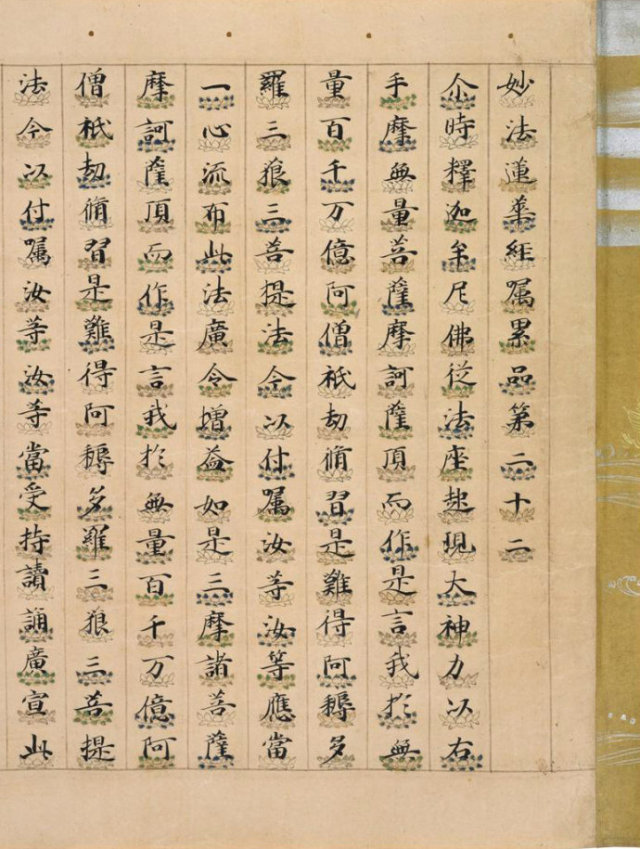 妙法蓮華経嘱累品第二十二
尒時釋迦牟尼佛従法座起現大神力以右
手摩無量菩薩摩訶薩頂而作是言我於無
量百千万億阿僧祇劫脩習是難得阿耨多
羅三藐三菩提法今以付嘱汝等汝等應當
一心流布此法廣令増益如是三摩諸菩薩
摩訶薩頂而作是言我於無量百千万億阿
僧祇劫脩習是難得阿耨多羅三藐三菩提
法今以付嘱汝等汝等當受持讀誦廣宣此